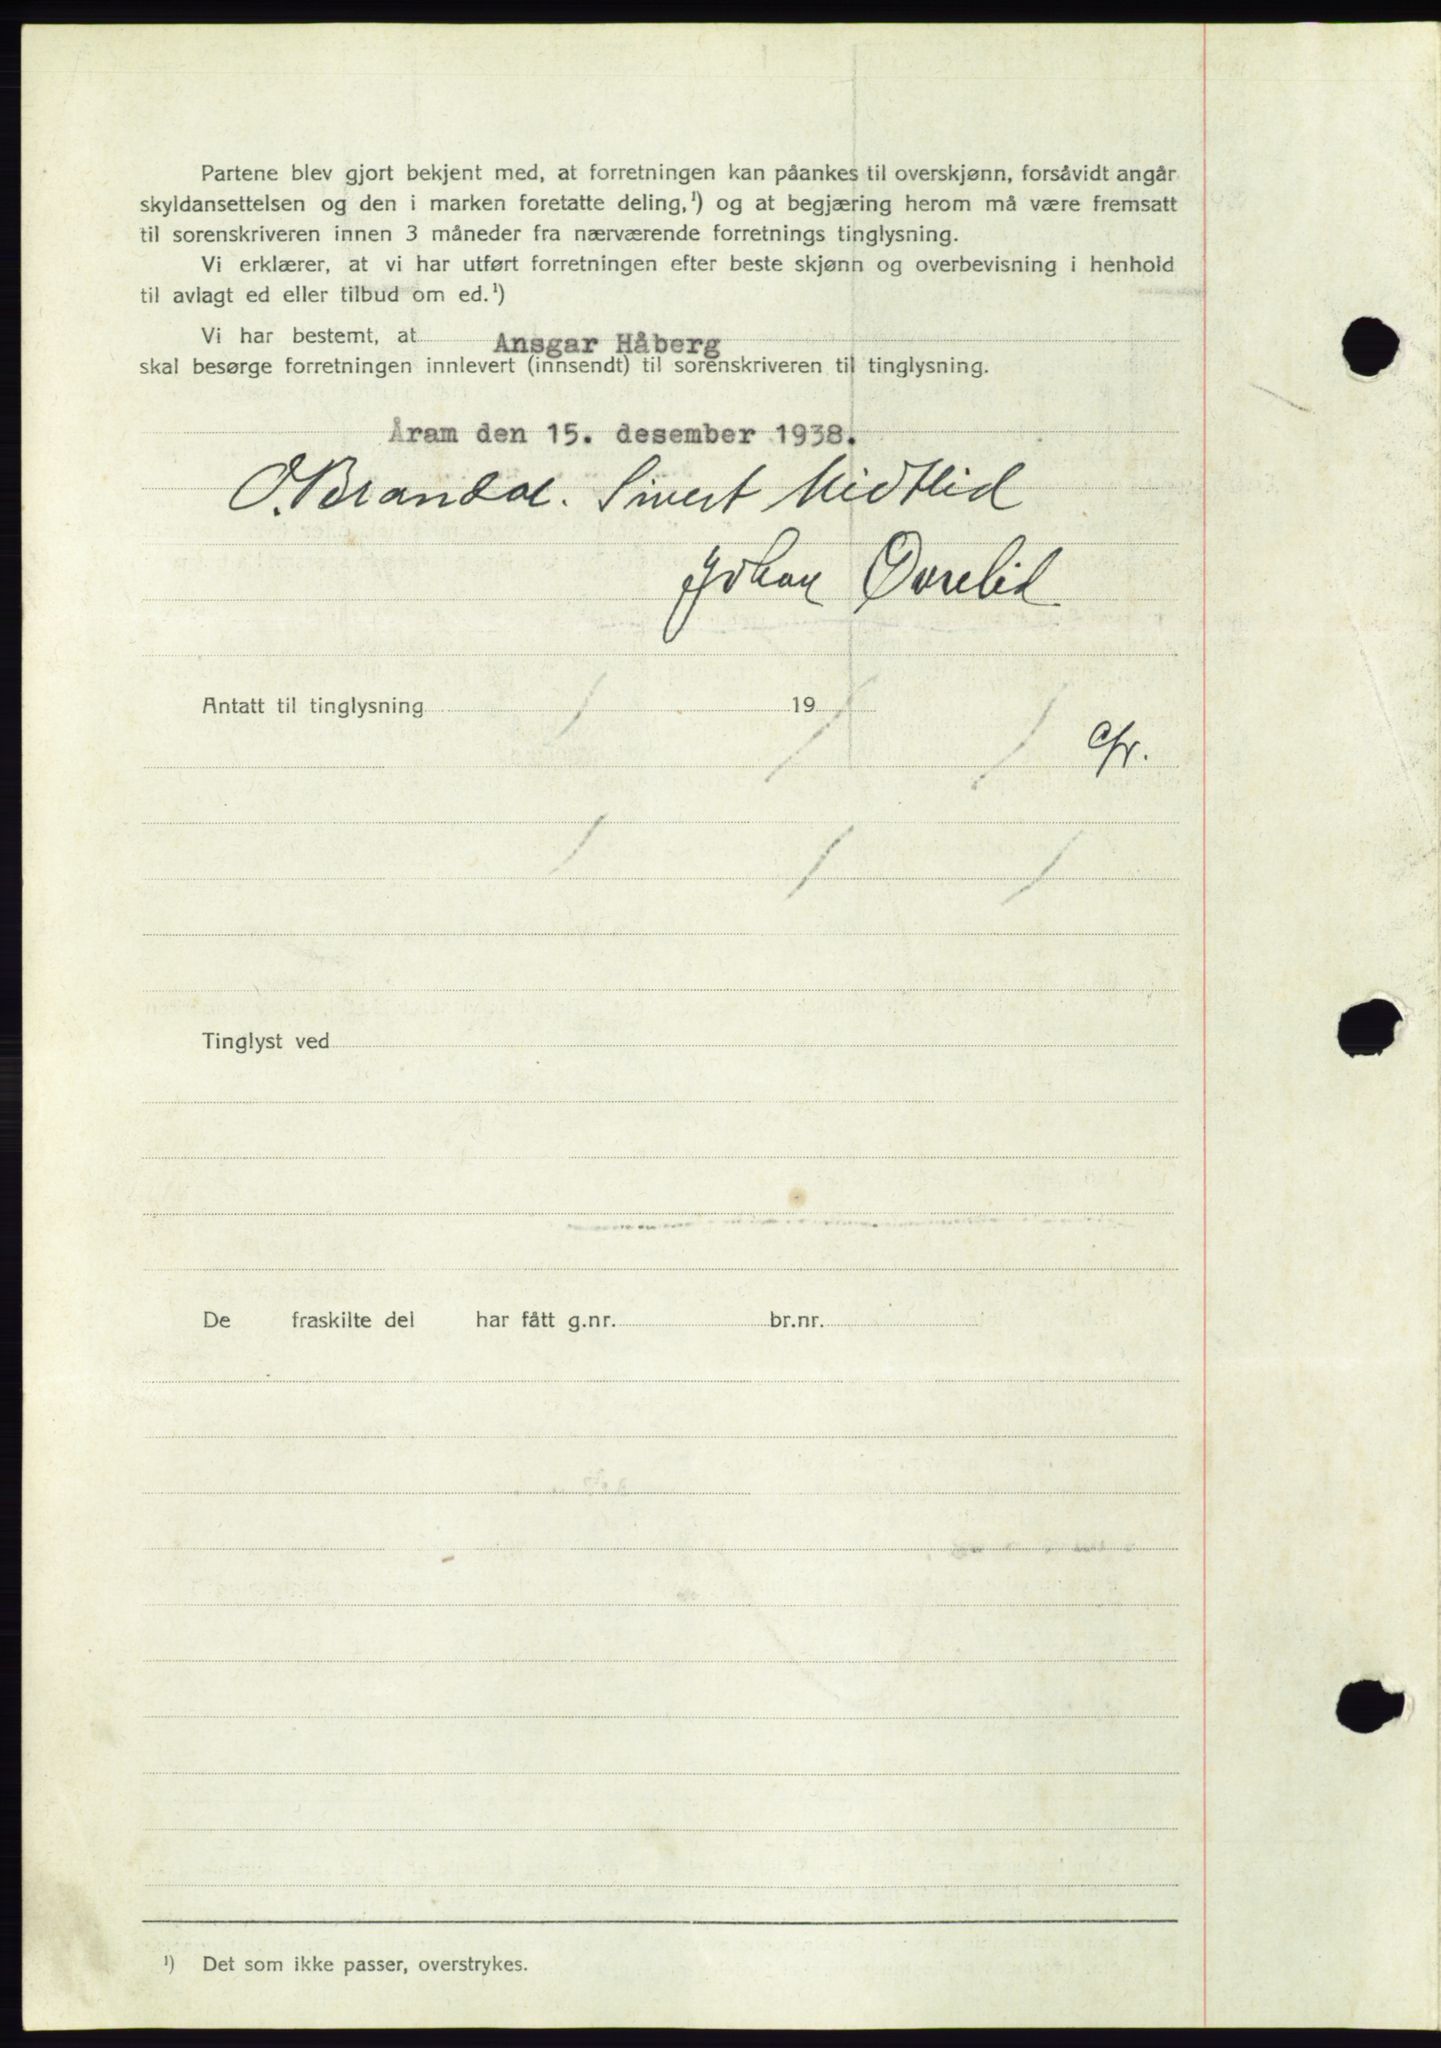 Partene blev gjort bekjent med, at forretningen kan påankes til overskjønn, forsåvidt angår
skyldansettelsen og den i marken foretatte deling,¹) og at begjæring herom må være fremsatt
til sorenskriveren innen 3 måneder fra nærværende forretnings tinglysning.
Vi erklærer, at vi har utført forretningen efter beste skjønn og overbevisning i henhold
til avlagt ed eller tilbud om ed.¹)
Vi har bestemt, at Ansgar Håberg
skal besørge forretningen innlevert (innsendt) til sorenskriveren til tinglysning.
Åram den 15. desember 1938.
O. Brandal. Sivert Midtlid
Johan Øvrelid
Antatt til tinglysning 19
Tinglyst ved
De fraskilte del har fått g.nr. br.nr.
¹) Det som ikke passer, overstrykes.